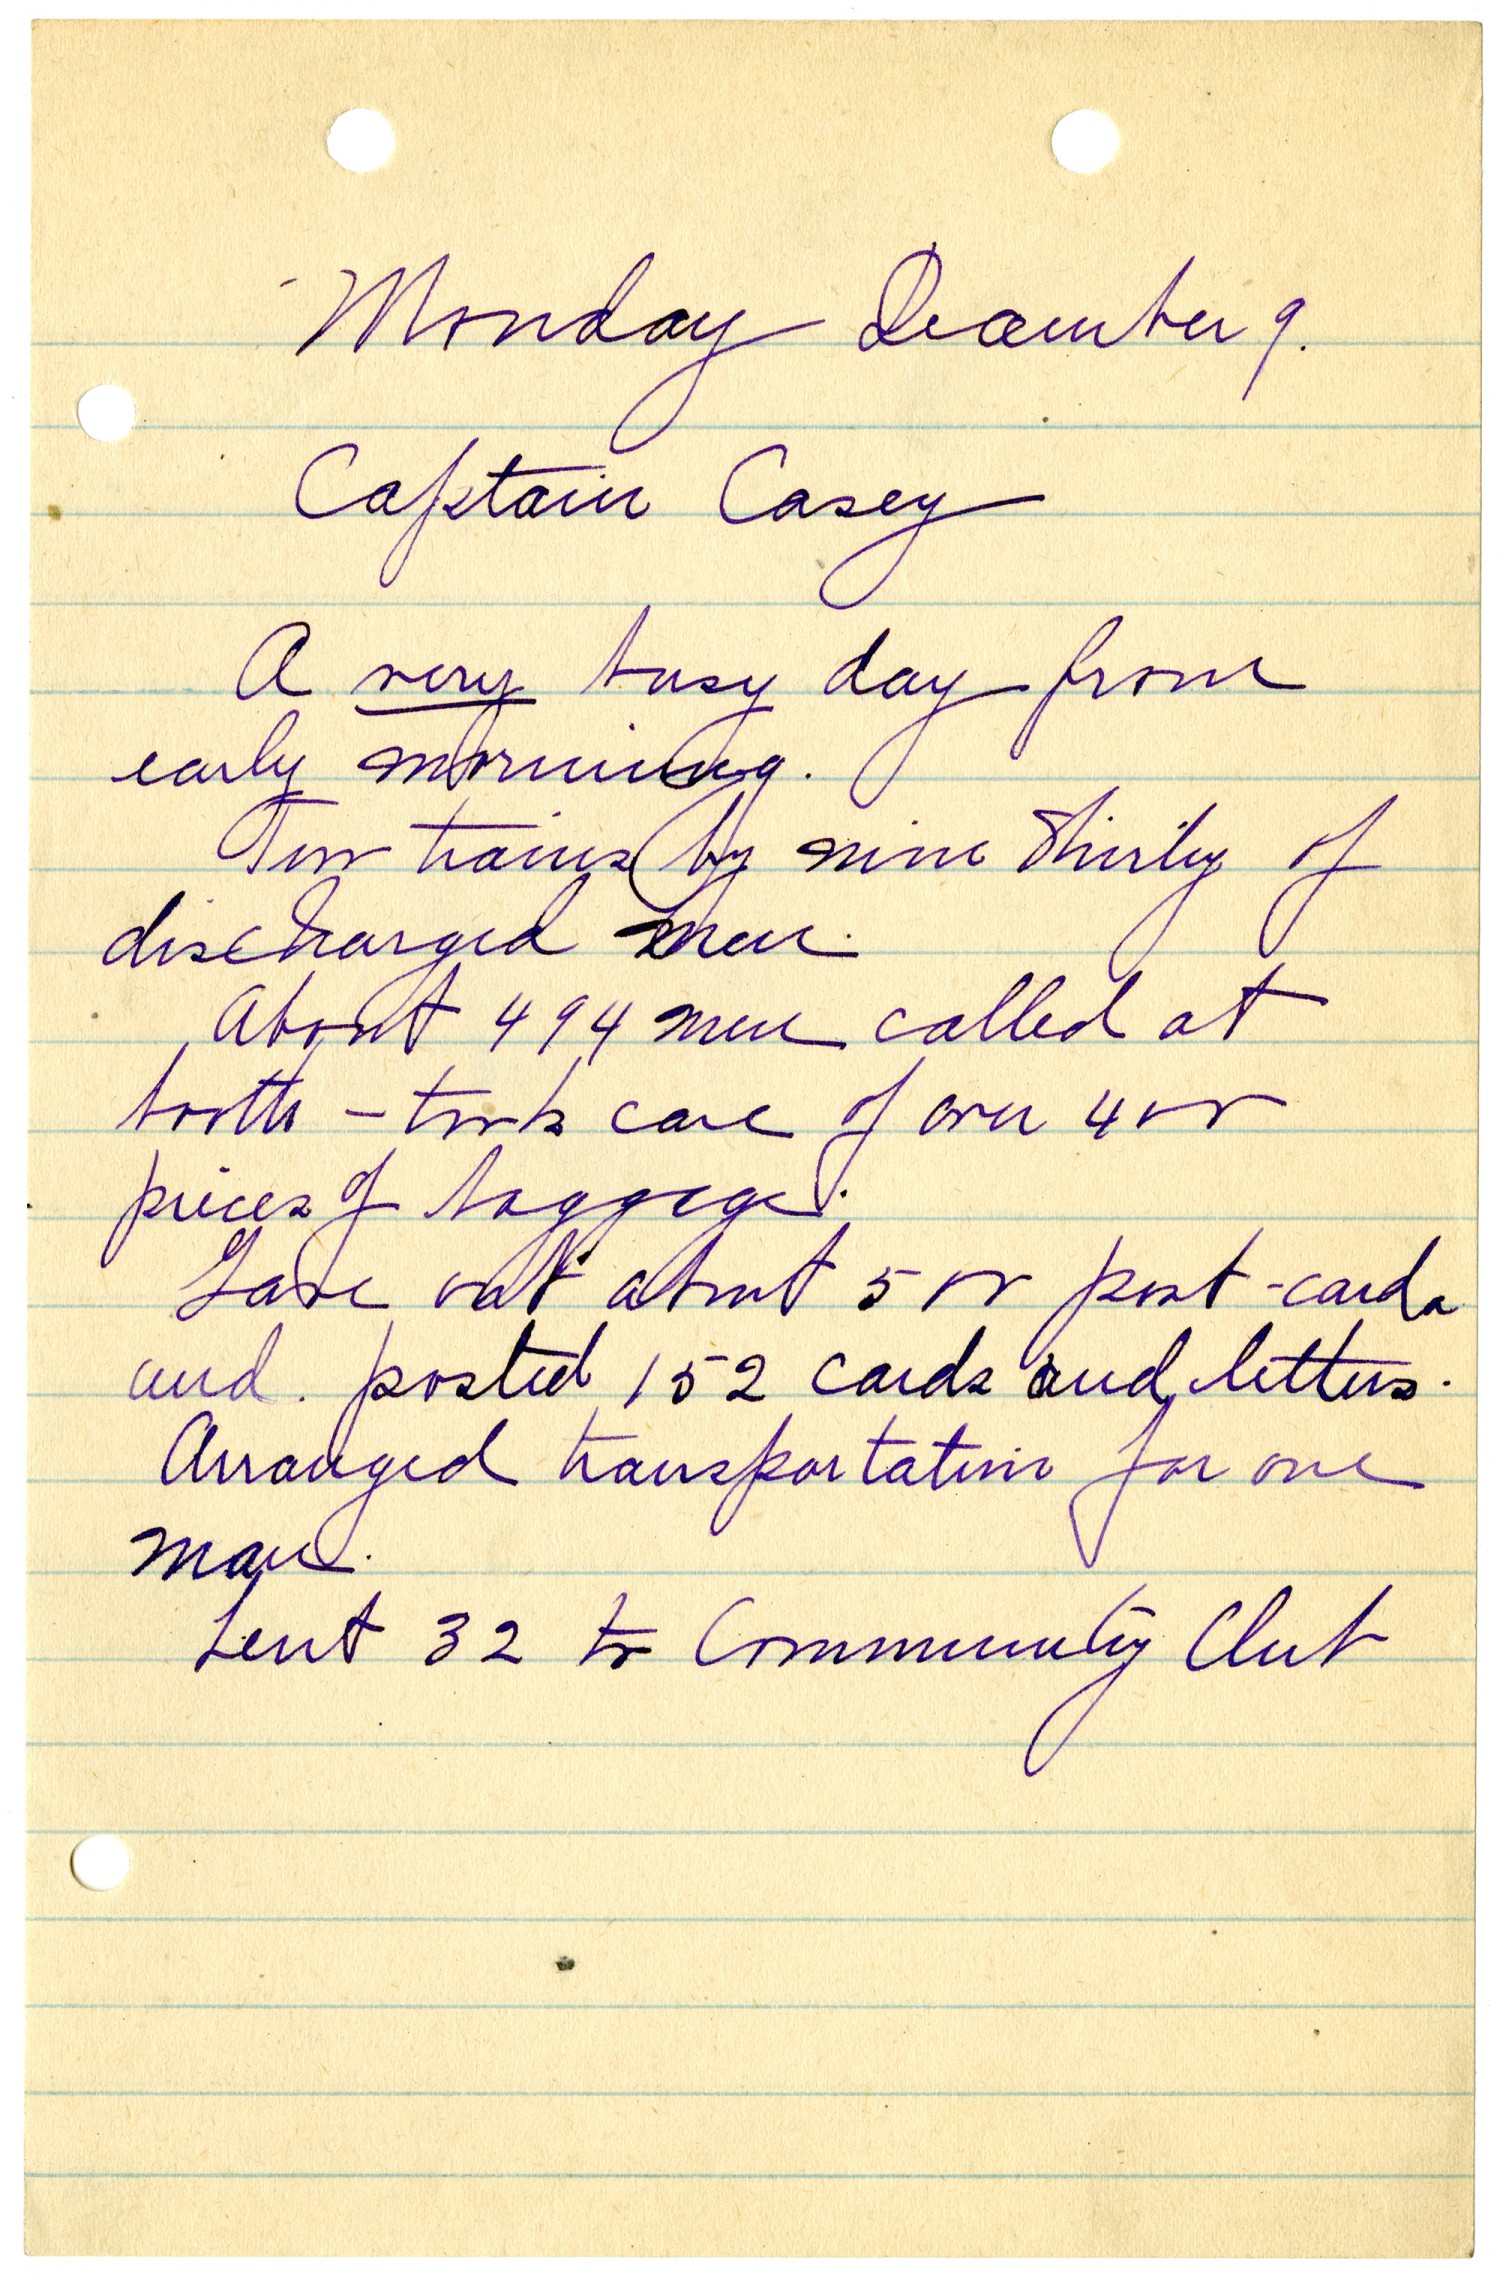 Monday December 9.
Captain Casey
A very busy day from
early morning.
Two trains by nine thirty of
discharged men.
About 494 men called at
booth - took care of over 400
pieces of baggage.
Gave out about 500 post-cards
and posted 152 cards and letters.
Arranged transportation for one
man.
Sent 32 to Community Club